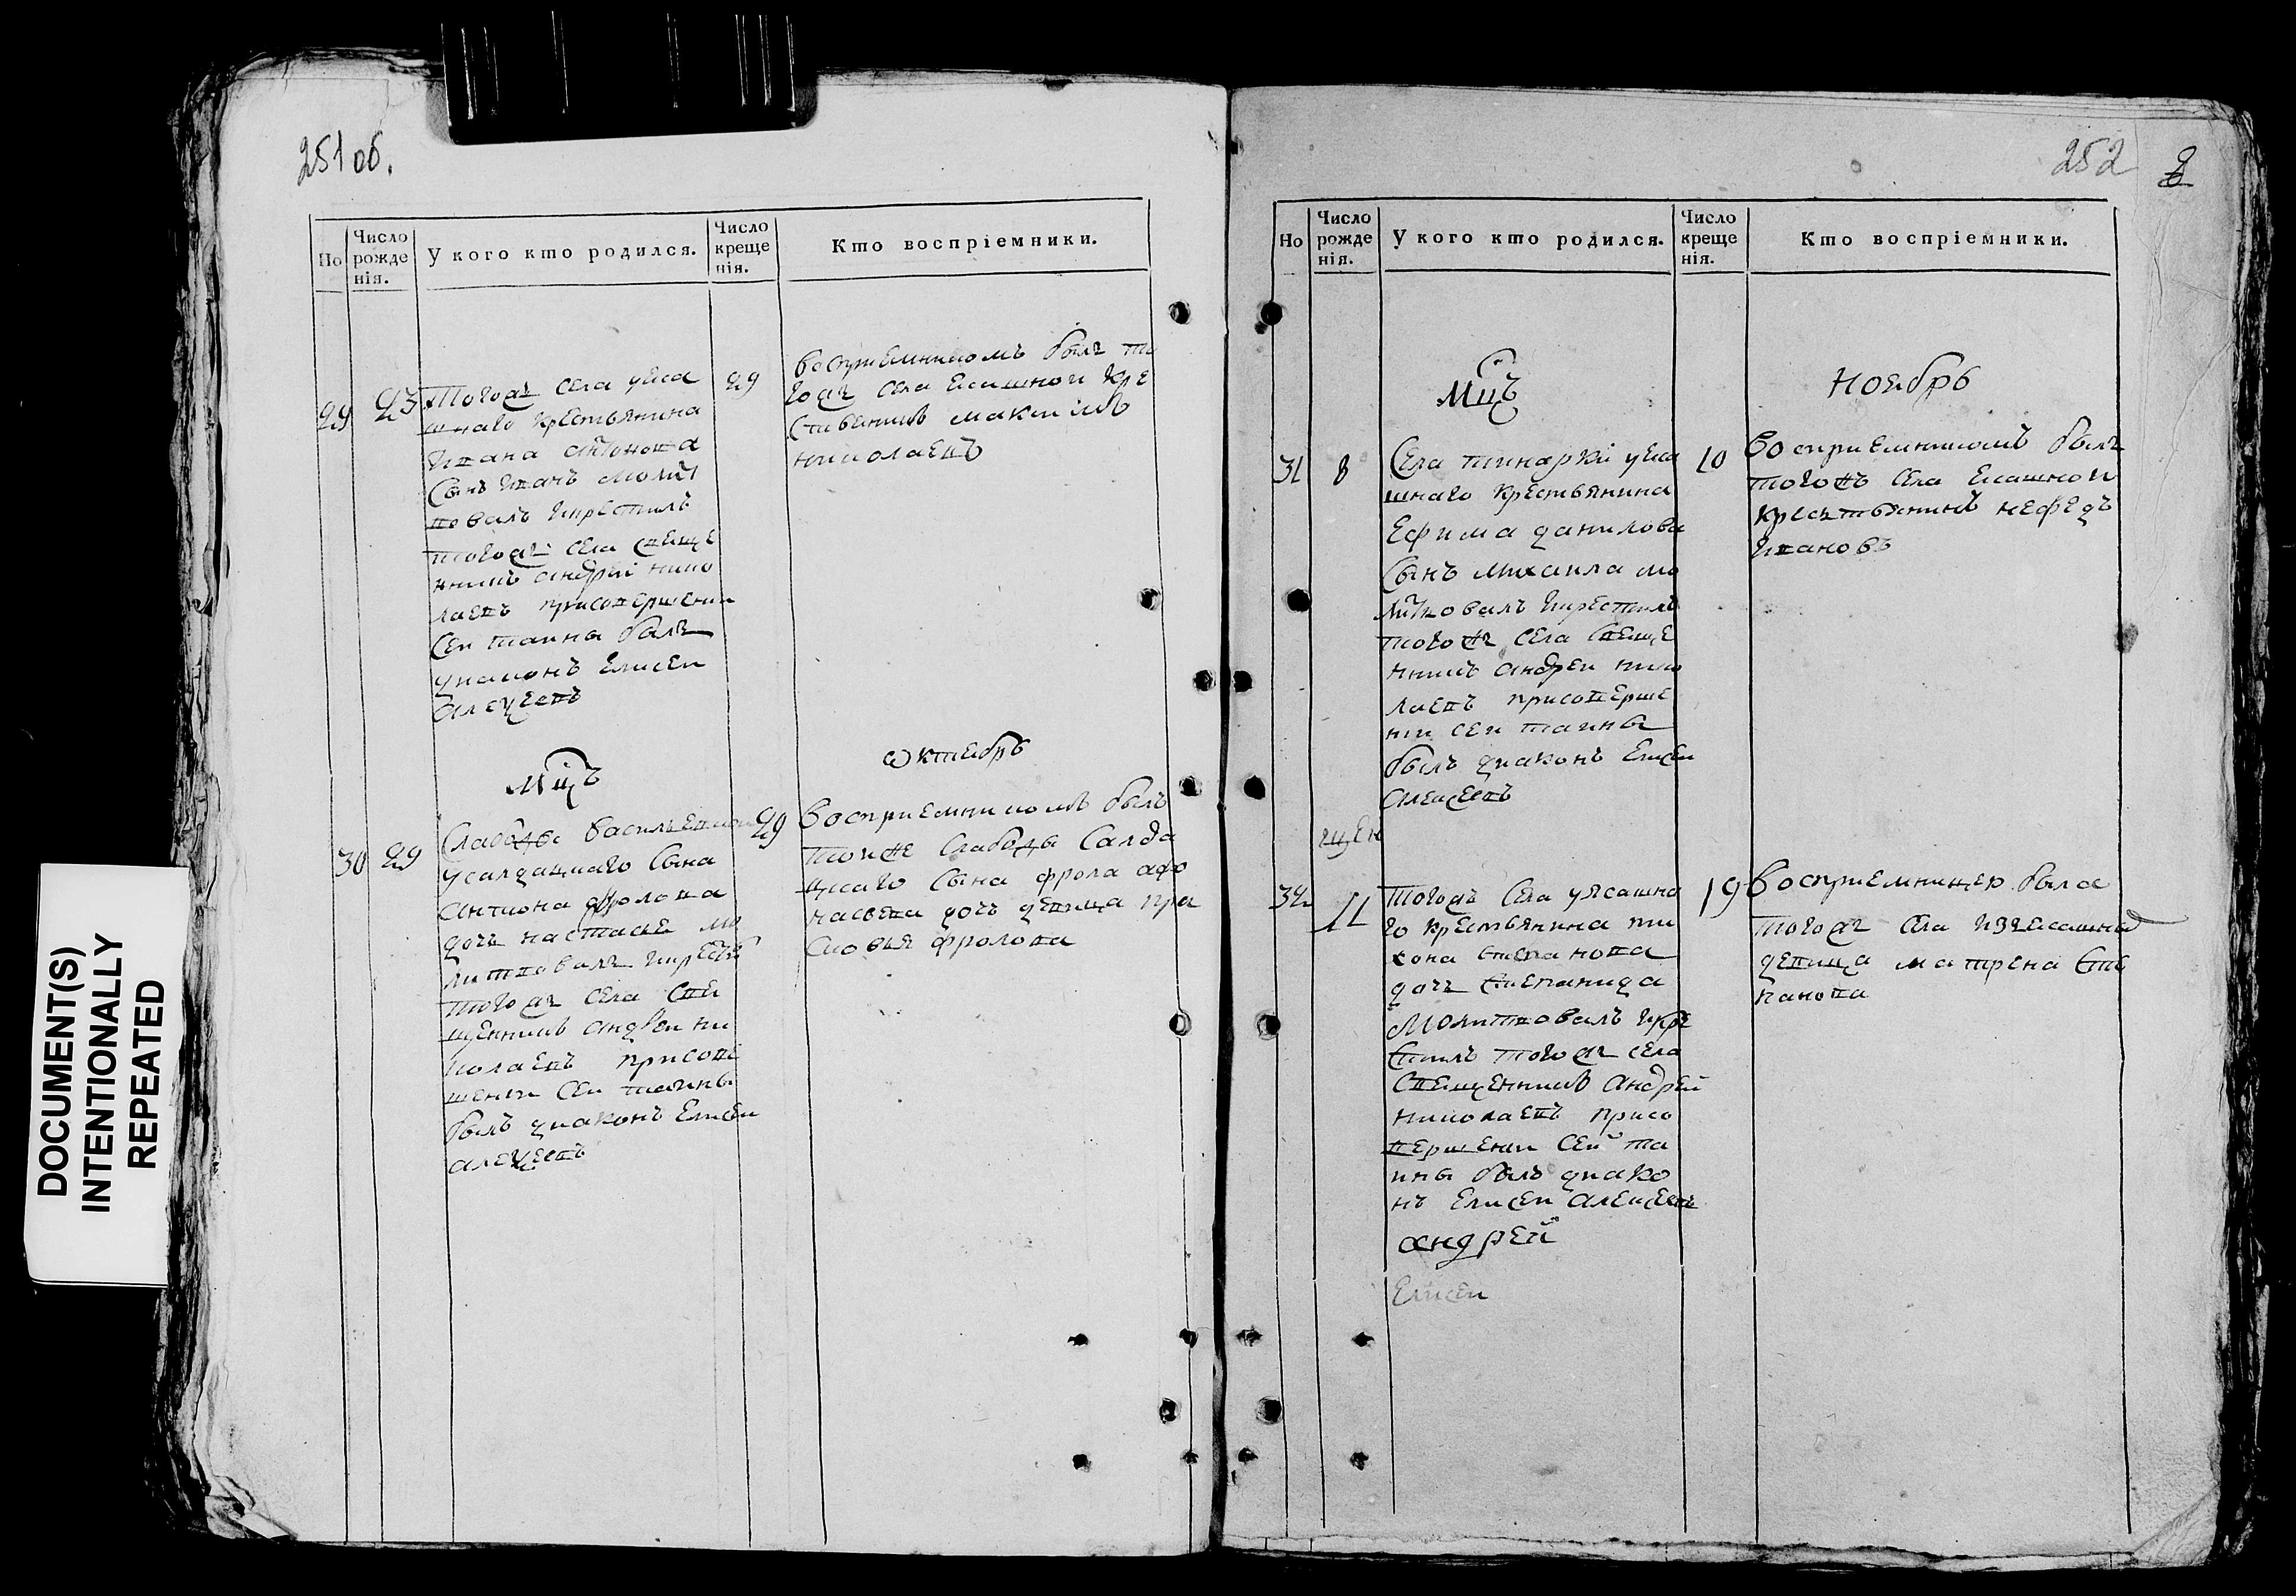 251 об.
Но
Число рожде нія.
У кого кто родился.
Число креще нія.
Кто воспріемники.
29
23
Тогожъ села уяса
шнаго крестьянина
Ивана антонова
Сынъ Иванъ молит
вовалъ икрестилъ
тогожъ села свяще
нникъ андрей нико
лаевъ присовершении
сеи таины былъ
диаконъ Елисеи
алеѯеевъ
29
восприемникомъ былъ то
гожъ села ясашнои кре
стьянинъ максимъ
николаевъ
Мцъ
октебрь
30
29
Слабоды васильевкои
усалдацкаго сына
антиона фролова
дочь настасье мо
литвовалъ икрести
тогожъ села свя
щенникъ андреи ни
колаевъ присове
шени сеи таины
былъ диаконъ Елисеи
алеѯеевъ
29
восприемникомъ былъ
тоиже слабоды салда
цкаго сына фрола афо
насьева дочь девица пра
сковья фролова
252
Но
Число рожде нія.
У кого кто родился.
Число креще нія.
Кто воспріемники.
Мцъ
Ноебрь
31
8
Села тинарки уяса
шнаго крестьянина
Ефима данилова
сынъ михаила мо
литвовалъ икрестилъ
тогожъ села свяще
нникъ андреи нико
лаевъ присоверше
нии сеи таины
былъ диаконъ Елисеи
алексеевъ
10
восприемникомъ былъ
тогожъ села ясашнои
крестьянинъ нефедъ
Ивановъ
щен
32
11
Тогожъ села уясашна
го крестьянина ти
хона степанова
дочь степанида
молитвовалъ икре
стилъ тогожъ села
священникъ андрей
николаевъ присо
вершении сей та
ины былъ диако
нъ Елисеи алексеевъ
андрей
Елисеи
19
восприемницею была
тогожъ села изясашныхъ
девица матрена сте
панова